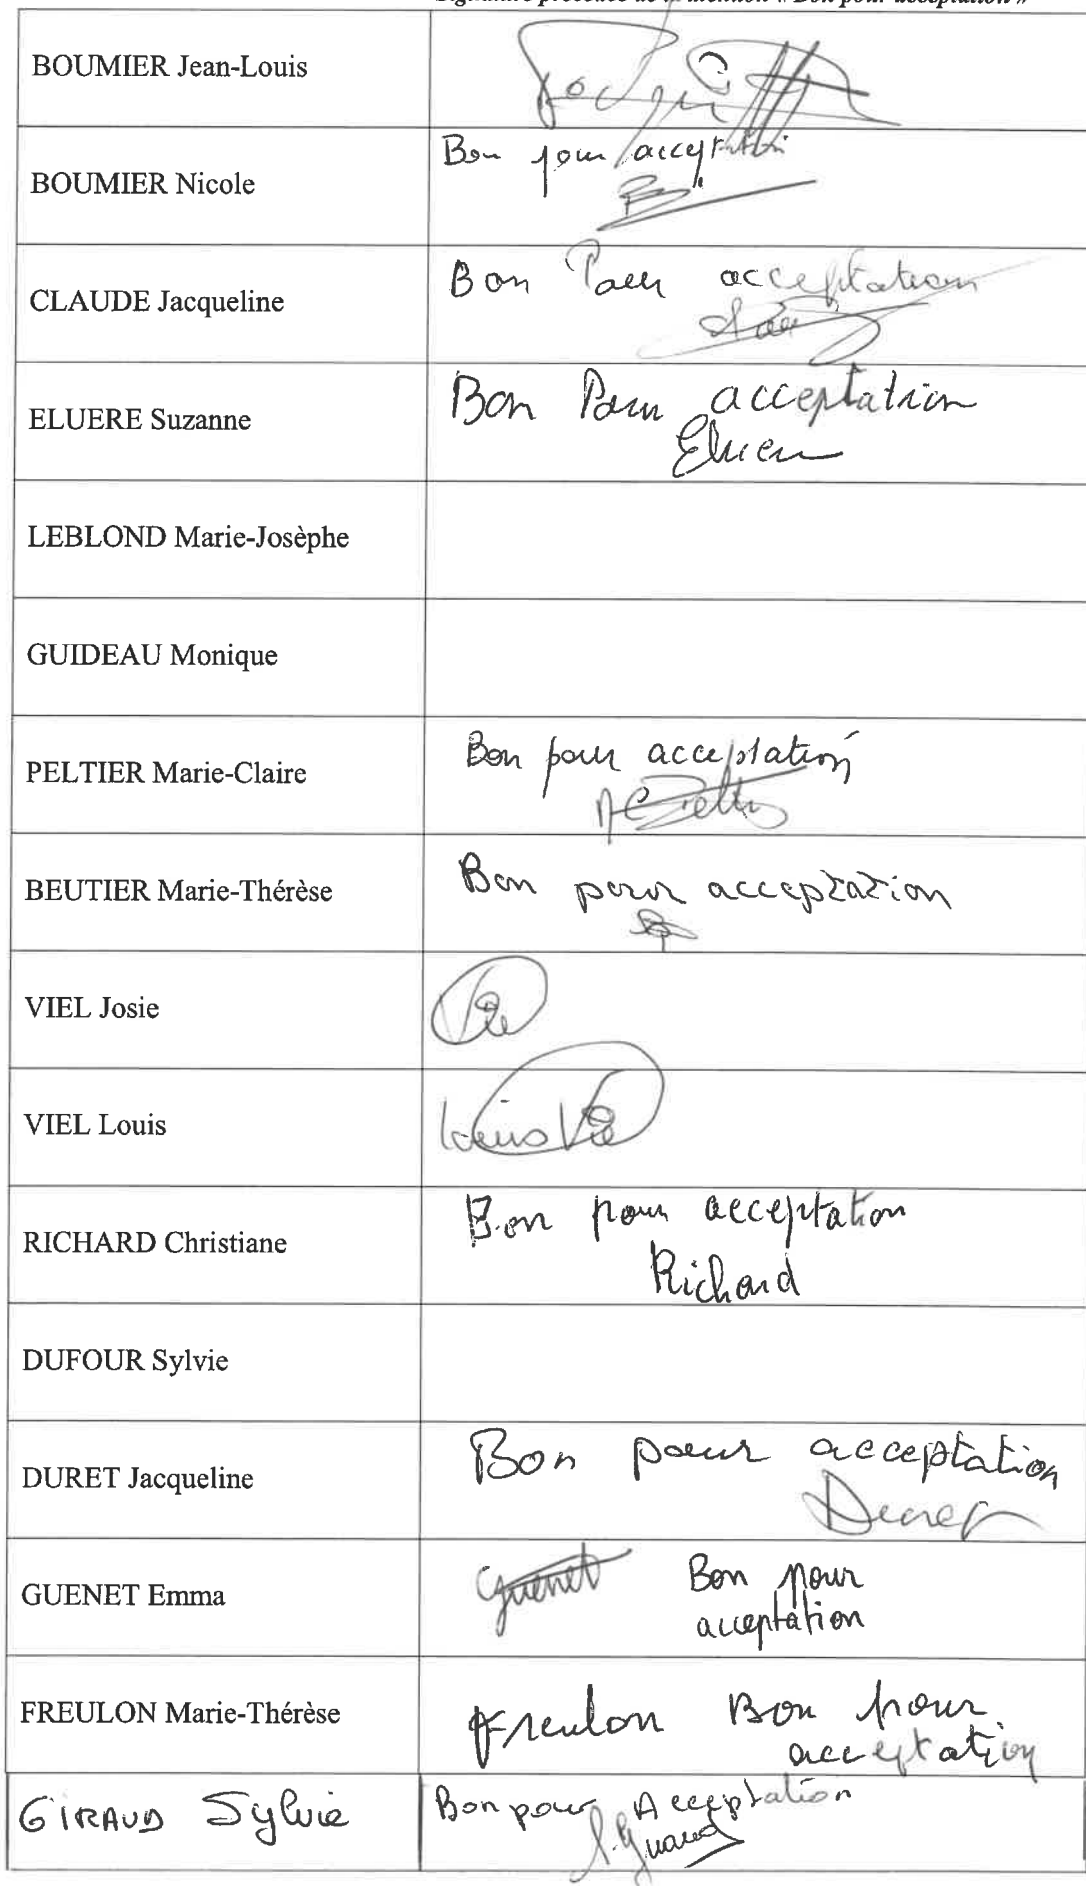 Signature précédée de la mention « Bon pour acceptation »
BOUMIER Jean-Louis
BOUMIER Nicole
Bon pour acceptation
CLAUDE Jacqueline
Bon Pour acceptation
ELUERE Suzanne
Bon Pour acceptation
Eluere
LEBLOND Marie-Josèphe
GUIDEAU Monique
PELTIER Marie-Claire
Bon pour acceptation
BEUTIER Marie-Thérèse
Bon pour acceptation
VIEL Josie
VIEL Louis
Louis Viel
RICHARD Christiane
Bon pour acceptation
Richard
DUFOUR Sylvie
DURET Jacqueline
Bon pour acceptation
Duret
GUENET Emma
Guenet Bon pour
acceptation
FREULON Marie-Thérèse
Freulon Bon pour
acceptation
GIRAUD Sylvie
Bon pour Acceptation
S. Giraud